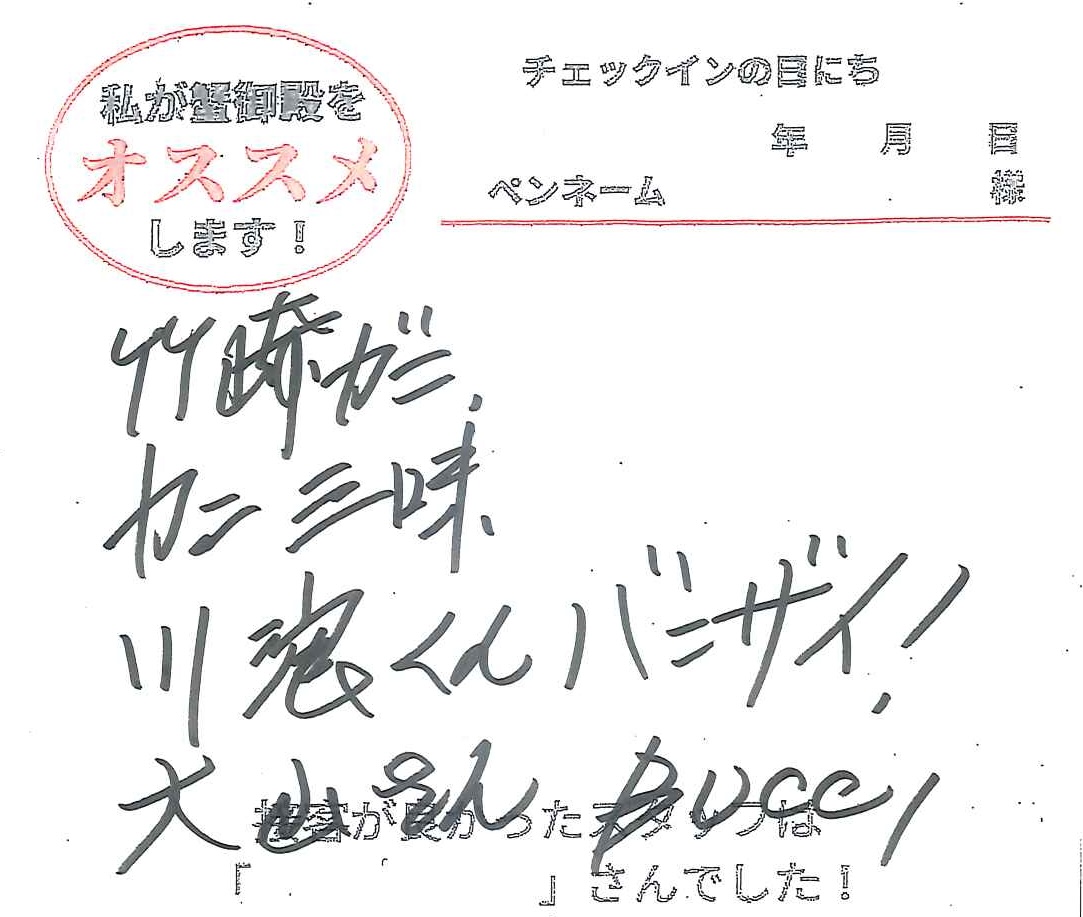 私が蟹御殿を
オススメ
します！
チェックインの日にち
年 月 日
ペンネーム 様
竹崎ガニ、
カニ三味、
くんバンザイ！
大山さん BUCCI
接客が良かったスタッフは
「 」さんでした！